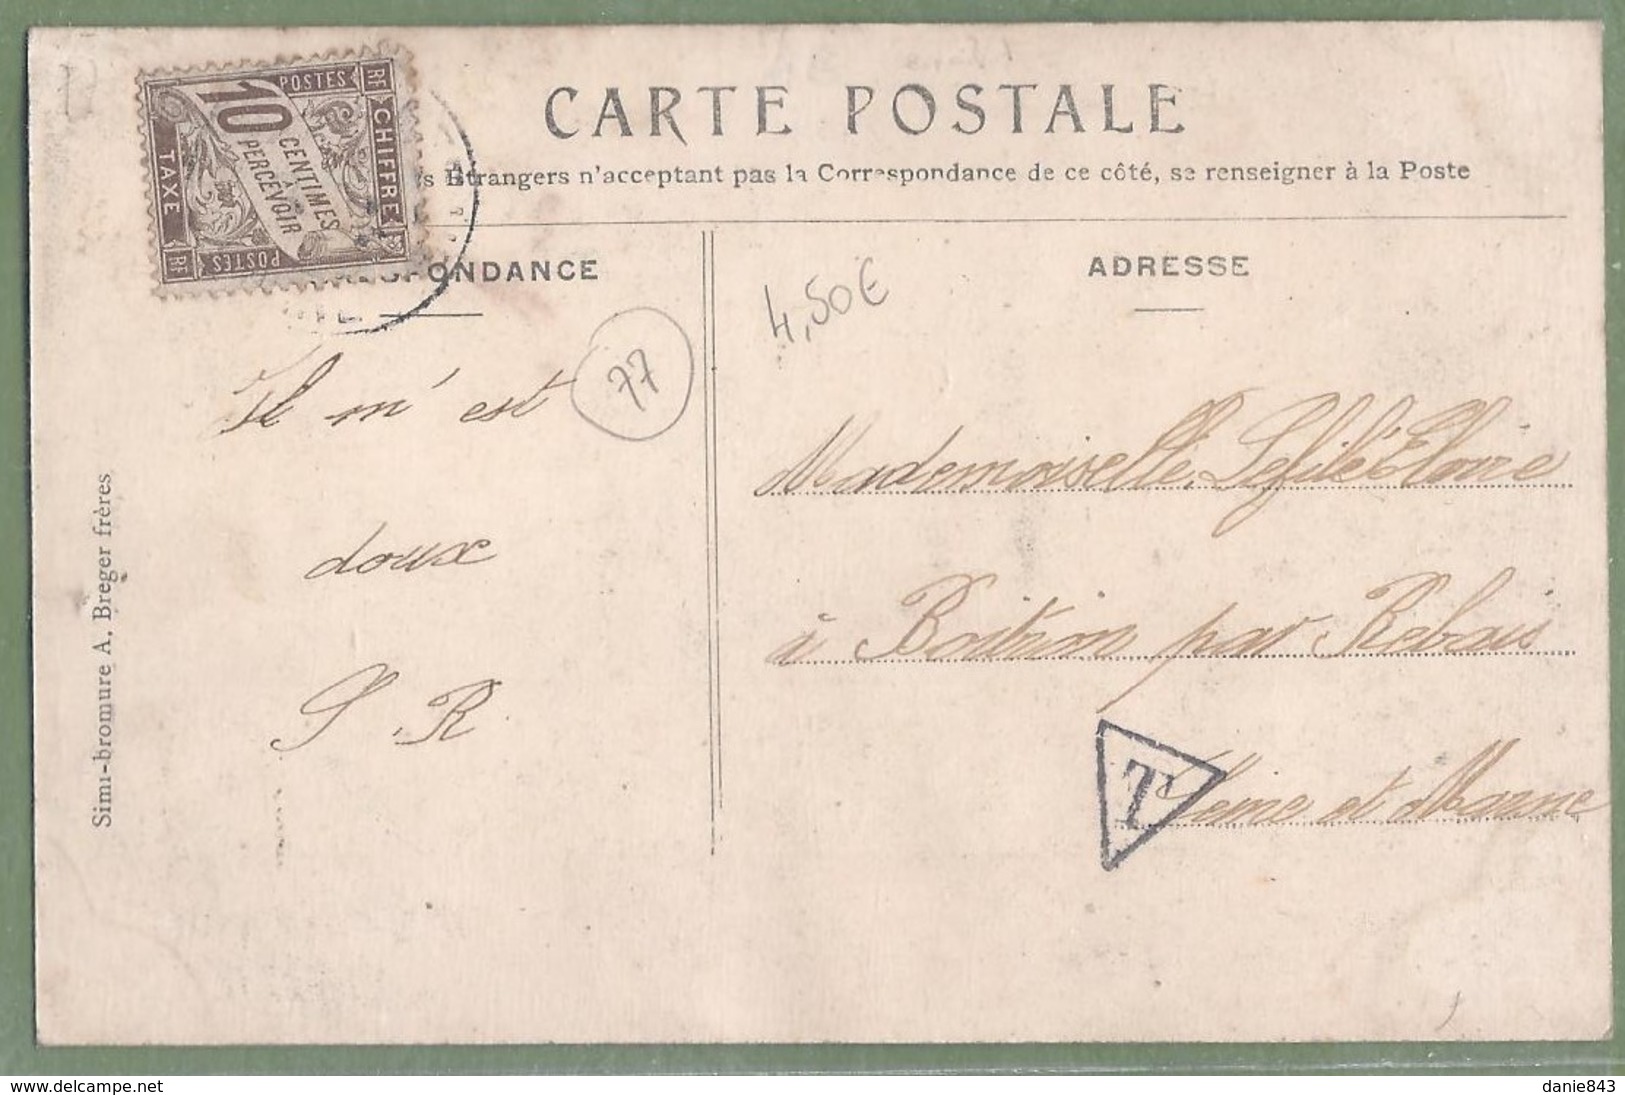 CARTE POSTALE
s Etrangers n'acceptant pas la Correspondance de ce côté, se renseigner à la Poste
POSTES
RF
CHIFFRE
10
CENTIMES
À
PERCEVOIR
TAXE
RF
POSTES
RF
PONDANCE
ADRESSE
4,50€
77
Il m'est
doux
S. R.
Mademoiselle
à Boitron par Rebais
T
Seine et Marne
Simi-bromure A. Breger frères
http://www.delcampe.net
danie843